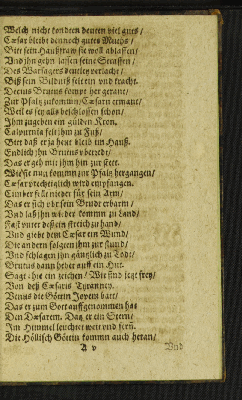 Welch nicht sondern deuten viel guts/
Cæsar bleibt dennoch gutes Muths/
Bitt sein Haußfraw sie woll ablassen/
Und jhn gehn lassen seine Strassen/
Des Warsagers deutley verlacht/
Biß sein Bildnuß felt ein und kracht.
Decius Brutus kompt her getant/
Zur Pfaltz zukommn/ Cæsarn ermant/
Weil es sey als beschlossen schon/
Jhm zugeben ein gülden Kron.
Calpurnia felt jhm zu Fuß/
Bitt daß er ja heut bleib im Hauß.
Endlich jhn Brutus beredt/
Das er geh mit jhm hin zur stett.
Wie sie nun kommn zur Pfaltz hergangen/
Cæsar rechtiglich wird empfangen.
Cimber felt nieder für sein Arm/
Das er sich vbr sein Bruder erbarm/
Vnd laß jhn wider kommn zu Land/
Faßt vnter deß ein streich zu hand/
Vnd giebt dem Cæsar ein Wund/
Die andern folgen jhm zur stund/
Vnd schlagen jhn gäntzlich zu Todt/
Brutus dann hebet auff ein Hut.
Sagt: diß ein zeichen/ Wir sind jtzt frey/
Von deß Cæsaris Tyranney.
Venus die Göttin Jovem batt/
Das er zum Gott auffgenommen hat
Den Cæsarem. Daz er ein Stern/
Im Himmel leuchtet weit und fern.
Die Höllisch Göttin kommn auch heran/
A v Vnd